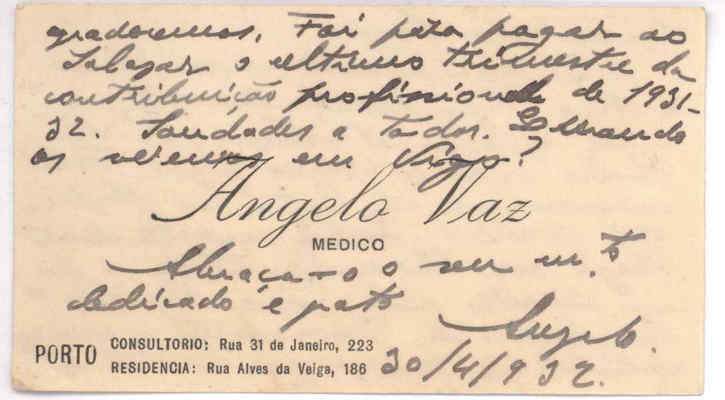 gradecemos. Foi para pagar ao
Salazar o ultimo trimestre da
contribuição profissional de 1931-
32. Saudades a todos. Quando
os veremos em Vigo?
Angelo Vaz
MEDICO
Abraça-o o seu m.to
dedicado e grato
Angelo.
PORTO
CONSULTORIO: Rua 31 de Janeiro, 223
RESIDENCIA: Rua Alves da Veiga, 186
30/4/932.